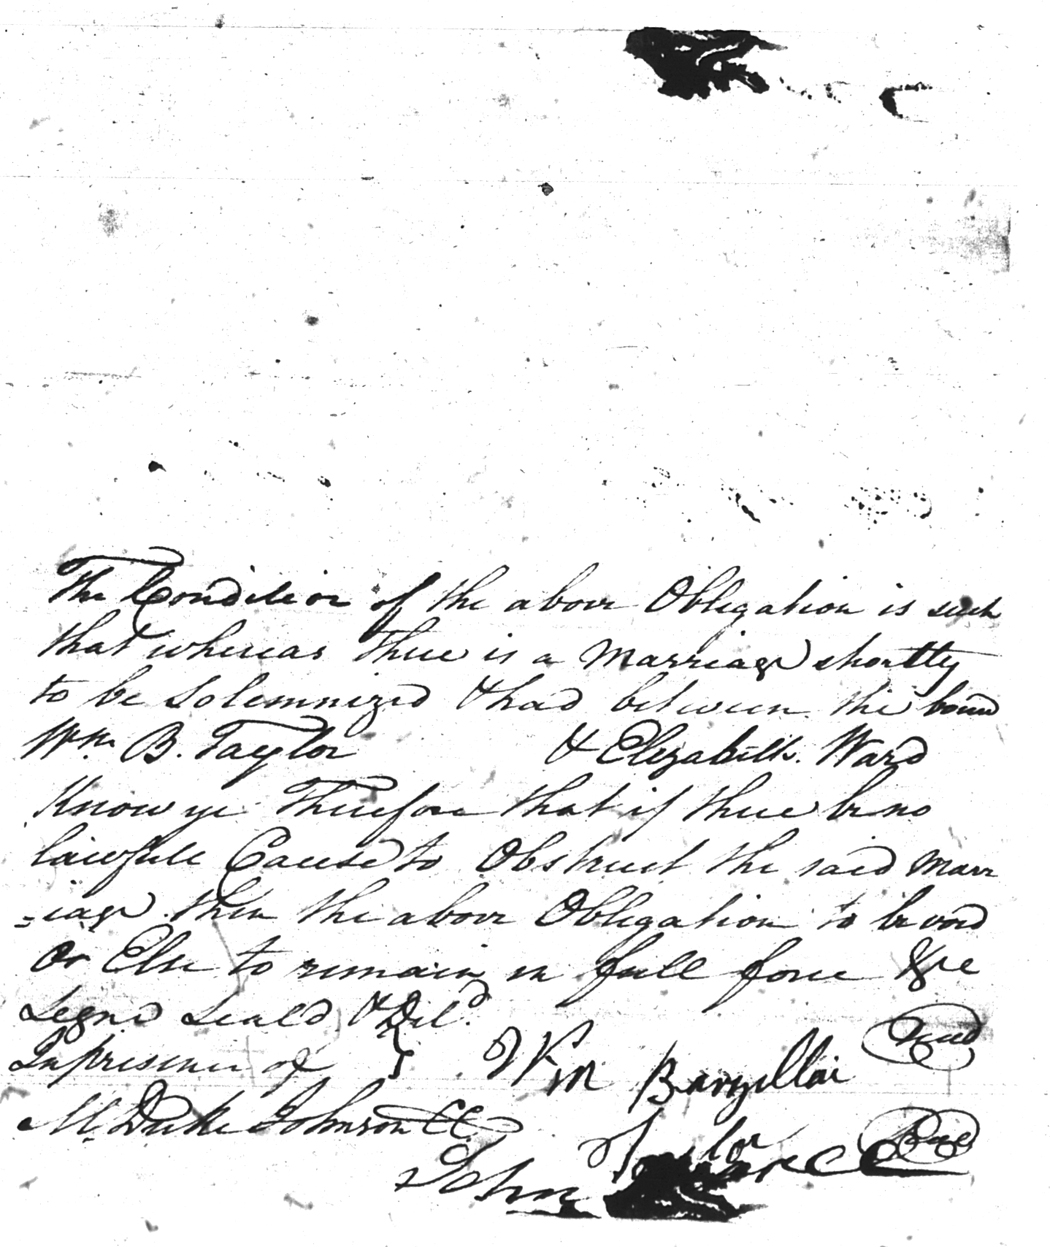 The Condition of the above Obligation is such
that whereas there is a Marriage shortly
to be Solemnized & had between the bound
Wm. B. Taylor & Elizabeth Ward
Know ye Therefore that if there be no
lawfull Cause to Obstruct the said Marr
=iage then the above Obligation to be void
Or Else to remain in full force &c
Signd Seald & Deld.
In presence of Wm Barzillai Seal
M. Duke Johnson CC Taylor Seal
John